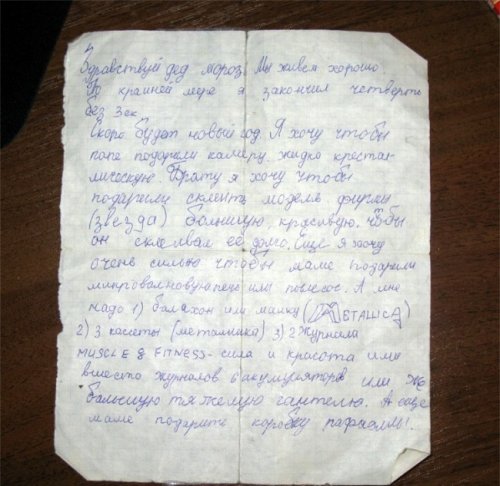 Здравствуй дед мороз. Мы живем хорошо,
По крайней мере я закончил четверть
без 3ек.
Скоро будет новый год. Я хочу чтобы
папе подарили камеру жидко кристал-
лическую. Брату я хочу чтобы
подарили склеить модель фирмы
(звезда) большую, красивую. Что бы
он склеивал её долго. Еще я хочу
очень сильно чтобы маме подарили
микровалновую печь или пылесос. А мне
надо 1) балахон или майку (METALLICA)
2) 3 касеты (металлика) 3) 2 журнала
MUSCLE & FITNESS - сила и красота или
вместо журналов 6 акумуляторов или же
большую тяжелую гантелю. А еще
маме подарить коробку рафаэллы.